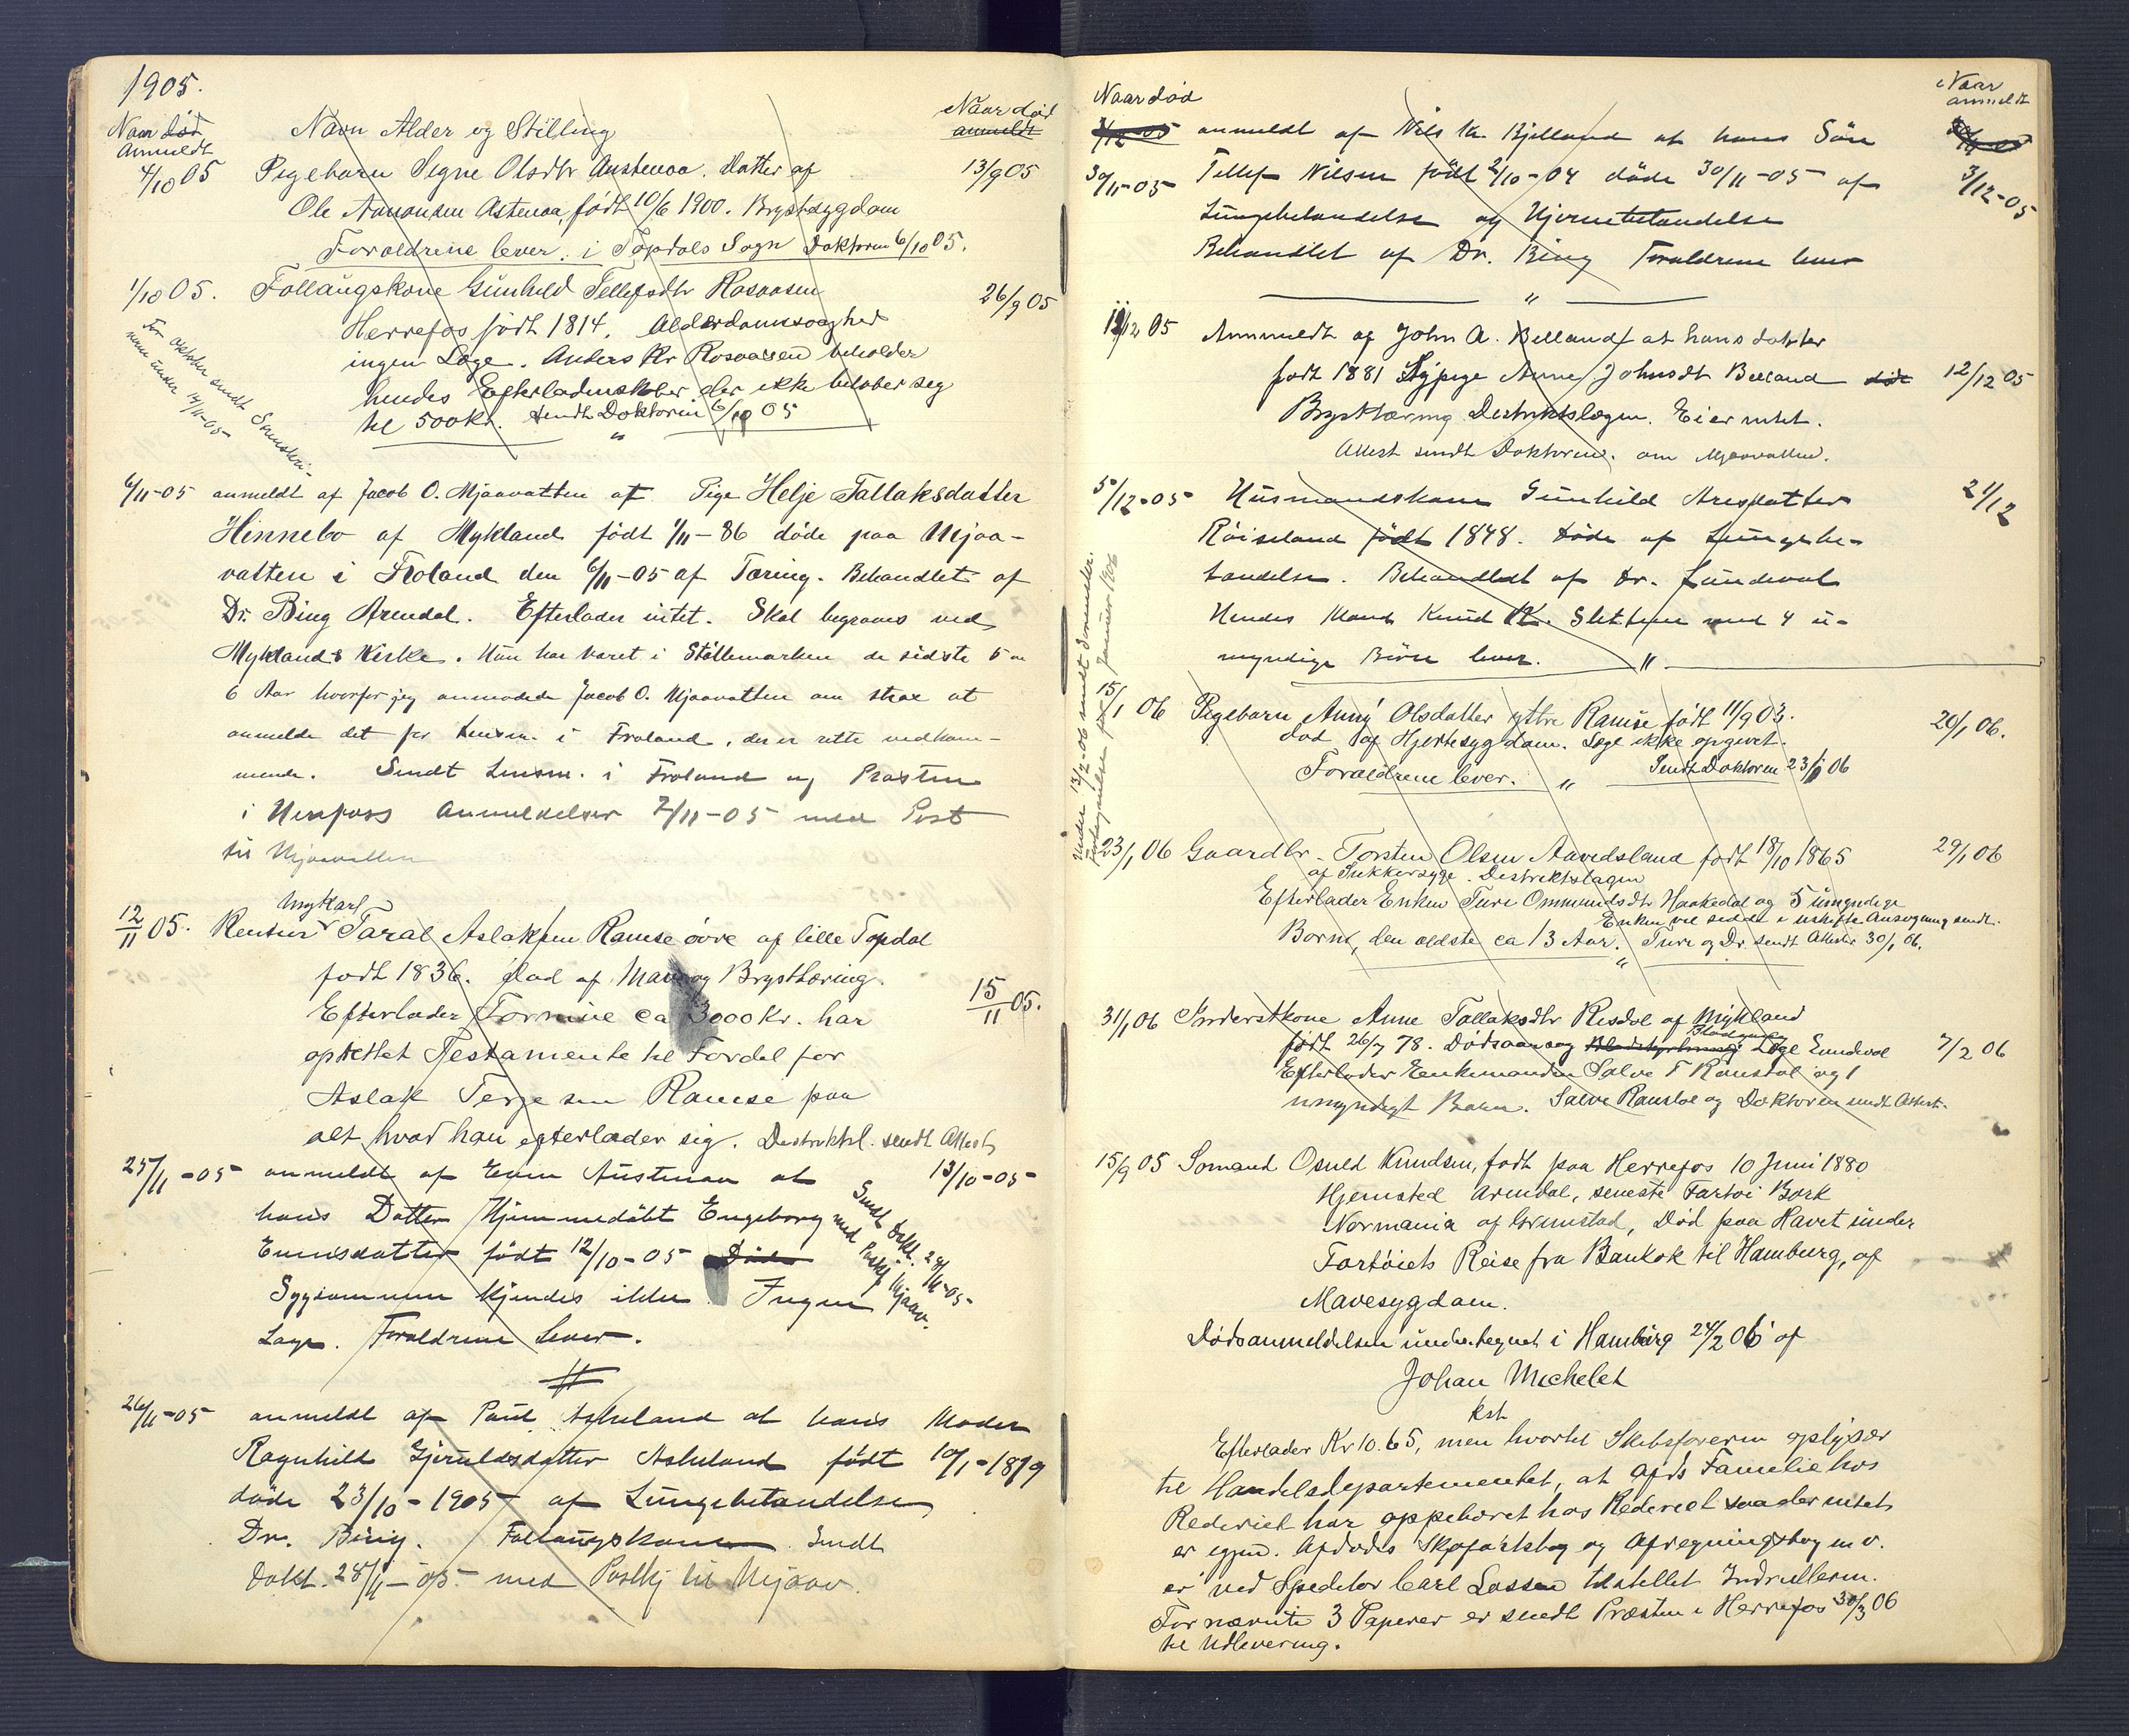 1905.
Naar død Anmeldt
Navn Alder og Stilling
Naar død anmeldt
4/10 05 Pigebarn Signe Olsdtr Austenaa. Datter af 13/9 05
Ole Aanonsen Astenaa, født 10/6 1900. Brystsygdom
Forældrene lever. i Topdals Sogn Doktoren 6/10 05.
1/10 05. Follaugskone Gunhild Tellefsdtr Rosaasen 26/9 05
Herrefos født 1814. Alderdomssvaghed
ingen Læge. Anders Kr Rosaasen beholder
hendes Efterladenskaber der ikke beløber seg
til 500 kr. sendt Doktoren 6/10 05
For oktober sendt Sorenskri-
veren under 14/11-05
6/11-05 anmeldt af Jacob O. Mjaavatten at Pige Helje Tallaksdatter
Hinnebo af Mykland født 1/11-86 døde paa Mjaa-
vatten i Froland den 6/11-05 af Tæring. Behandlet af
Dr. Bing Arendal. Efterlader intet. Skal begraves ved
Myklands Kirke. Hun har været i Stællemarken de sidste 5 a
6 Aar hvorfor jeg anmodede Jacob O. Mjaavatten om strax at
anmelde det for Lensm. i Froland, den er rette vedkom-
mende. Sendt Lensm. i Froland og Præsten
i Herefoss Anmeldelser 7/11-05 med Post
til Mjaavatten
12/11 05. Rentier Taral Aslaksen Ramse øvre af lille Topdal
Ungkarl
født 1836. død af Mave og Brysttæring.
Efterlader Formue ca 3000 Kr. har 15/11 05.
oprettet Testamente til Fordel for
Aslak Terjesen Ramse paa
alt hvad han efterlader sig. Destriktsl. sendt Attest
25/11-05 anmeldt af Even Austenaa at 13/10-05
hans Datter Hjemmedøbt Engeborg
Evensdatter født 12/10-05 Døde
Sygdommen kjendes ikke. Ingen
Læge. Forældrene Lever.
Sendt Dokt. 28/11-05
med Postkj Mjaav.
26/11-05 anmeldt af Paul Askeland at hans Moder
Ragnhild Gjeruldsdatter Askeland født 10/1-1819
døde 23/10-1905 af Lungebetændelse
Dr. Bing. Follaugskone. Sendt
Dokt. 28/11-05 med Postkj til Mjaav.
Naar død
Naar anmeldt
3/12-05 anmeldt af Nils K. Bjelland at hans Søn
30/11-05 Tellef Nilsen født 2/10-04 døde 30/11-05 af 3/12-05
Lungebetændelse og Hjernebetændelse
Behandlet af Dr. Bing Forældrene lever
12/12 05 Anmeldt af John A. Belland at hans datter
født 1881 Sypige Anne Johnsdt Belland døde 12/12 05
Brysttæring Destriktslægen. Eier intet.
Attest sendt Doktoren. om Mjaavatten.
5/12-05 Husmandskone Gunhild Aresdatter 21/12
Røiseland født 1848. døde af Lungebe-
tændelse. Behandlet af Dr. Lundeval
Hendes Mand Knud K. Sletten med 4 u-
myndige Børn lever.
Under 13/2-06 sendt Sorenskr.
Fortegnelsen for Januar 1906
15/1 06 Pigebarn Anny Olsdatter yttre Ramse født 11/9 03. 20/1 06.
død af Hjertesygdom. Læge ikke opgivet.
Forældrene lever. Sendt Doktoren 23/1 06
23/1 06 Gaardbr. Torsten Olsen Aavedsland født 18/10 1865 29/1 06
af Sukkersyge. Destriktslægen
Efterlader Enken Ture Ommundsdtr Haakedal og 5 umyndige
Enken vil sidde i uskifte Ansøgning sendt.
Børn, den ældste ca 13 Aar. Ture og Dr. sendt Attester 30/1 06.
31/1 06 Inderstkone Anne Tallaksdtr Risdal af Mykland
født 26/7 78. Dødsaarsag Læge Lundeval 7/2 06
Efterlader Enkemanden Salve T Ramstøl og 1
umyndigt Barn. Salve Ramstøl og Doktoren sendt Attest.
15/9 05 Sømand Osuld Knudsen, født paa Herrefos 10 Juni 1880
Hjemsted Arendal, seneste Fartøi Bark
Normania af Grimstad, Død paa Havet under
Fartøiets Reise fra Bankok til Hamburg, af
Mavesygdom.
Dødsanmeldelsen undertegnet i Hamburg 24/2 06 af
Johan Michelet
kst
Efterlader Kr 10.65, men hvortil Skibsføreren oplyser
til Handelsdepartementet, at Afd's Familie hos
Rederiet har oppebøret hos Rederiet saa der intet
er igjen. Afdødes Skofartsbog og Afregningsbog m v.
er ved Speditør Carl Lassen tilstillet Indrulleren.
Fornævnte 3 Papirer er sendt Præsten i Herrefos 30/3 06
til Udlevering.